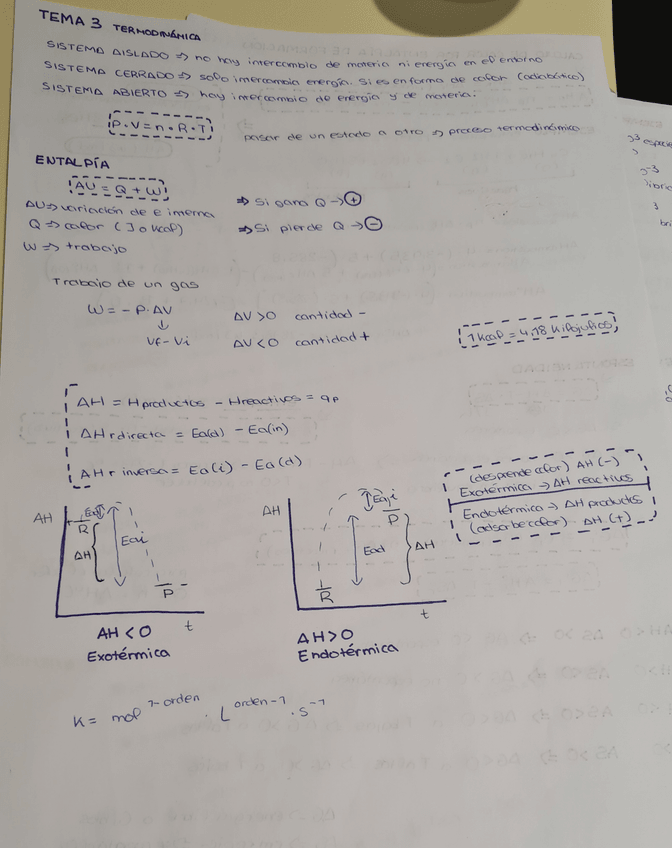 TEMA 3 TERMODINÁMICA
SISTEMA AISLADO => no hay intercambio de materia ni energía en el entorno
SISTEMA CERRADO => solo intercambia energía. Si es en forma de calor (adiabático)
SISTEMA ABIERTO => hay intercambio de energía y de materia.
P·V=n·R·T
pasar de un estado a otro => proceso termodinámico
ENTALPÍA
ΔU = Q + W
ΔU=>variación de E interna
=> Si gana Q → +
Q => calor (J o Kcal)
=> Si pierde Q → −
W => trabajo
Trabajo de un gas
W = − P·ΔV
ΔV >0 cantidad −
↓
Vf − Vi
ΔV <0 cantidad +
1 Kcal = 4,18 Kilojulios
ΔH = Hproductos − Hreactivos = qp
ΔHr directa = Ea(d) − Ea(in)
ΔHr inversa = Ea(i) − Ea(d)
(desprende calor) ΔH (−)
Exotérmica → ΔH reactivos
Endotérmica → ΔH products
(adsorbe calor) ΔH (+)
ΔH
R
Ead
Eai
ΔH
P
t
ΔH<0
Exotérmica
ΔH
R
Eai
P
Ead
ΔH
t
ΔH>0
Endotérmica
K = mol^1-orden · L^orden-1 · s^-1